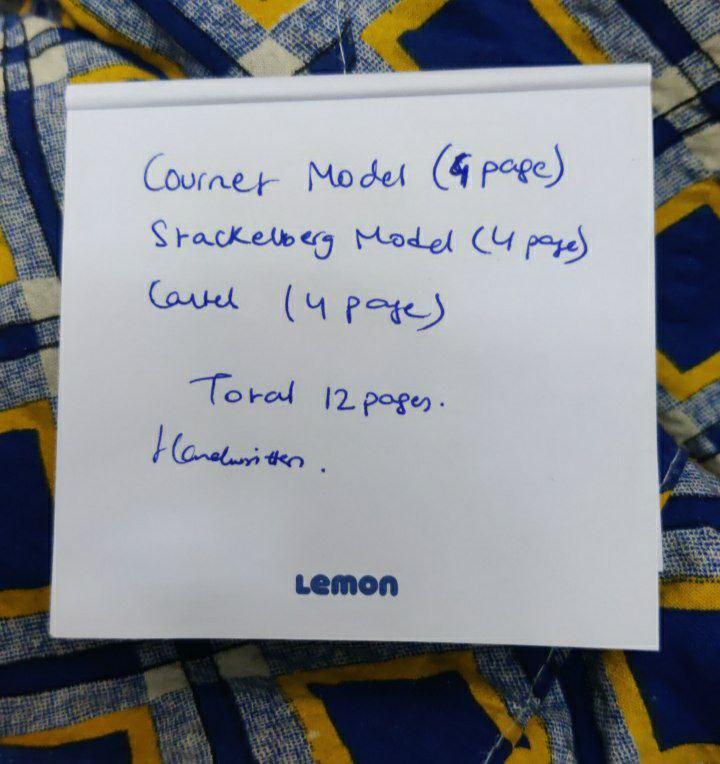 Cournet Model (4 page)
Stackelberg Model (4 page)
Cartel (4 page)
Total 12 pages.
Handwritten.
Lemon